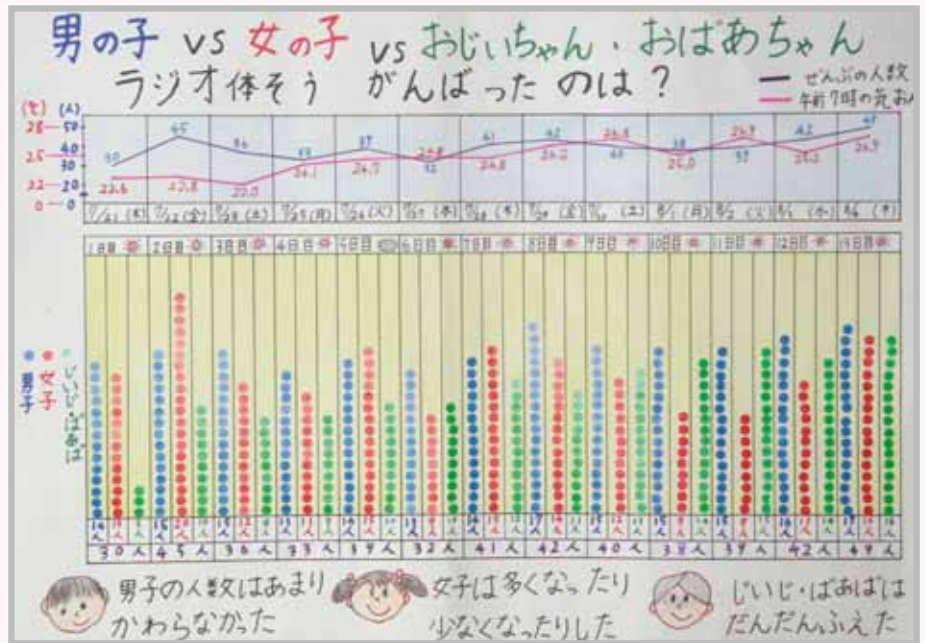 男の子 vs 女の子 vs おじいちゃん・おばあちゃん
ラジオ体そう がんばったのは?
ぜんぶの人数
午前7時の気おん
(℃) (人)
28 50
25 40
30
22 20
0 0
30 45 36 33 39 32 41 42 40 38 39 42 49
22.6 22.8 22.0 24.1 24.7 24.8 24.8 26.2 25.0 26.9
7/21(木) 7/22(金) 7/23(土) 7/25(月) 7/26(火) 7/27(水) 7/28(木) 7/29(金) (土) 8/1(月) 8/2(火) (水) (木)
1日目 2日目 3日目 4日目 5日目 6日目 7日目 8日目 9日目 10日目 11日目 12日目 13日目
男子
女子
じいじ・ばあば
30人 45人 36人 33人 39人 32人 41人 42人 40人 38人 39人 42人 49人
男子の人数はあまり
かわらなかった
女子は多くなったり
少なくなったりした
じいじ・ばあばは
だんだんふえた